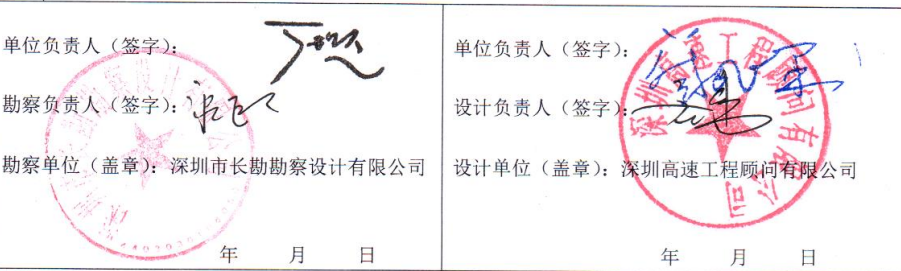 单位负责人（签字）：
勘察负责人（签字）：
勘察单位（盖章）：深圳市长勘勘察设计有限公司
年 月 日
单位负责人（签字）：
设计负责人（签字）：
设计单位（盖章）：深圳高速工程顾问有限公司
深圳高速工程顾问有限公司
年 月 日